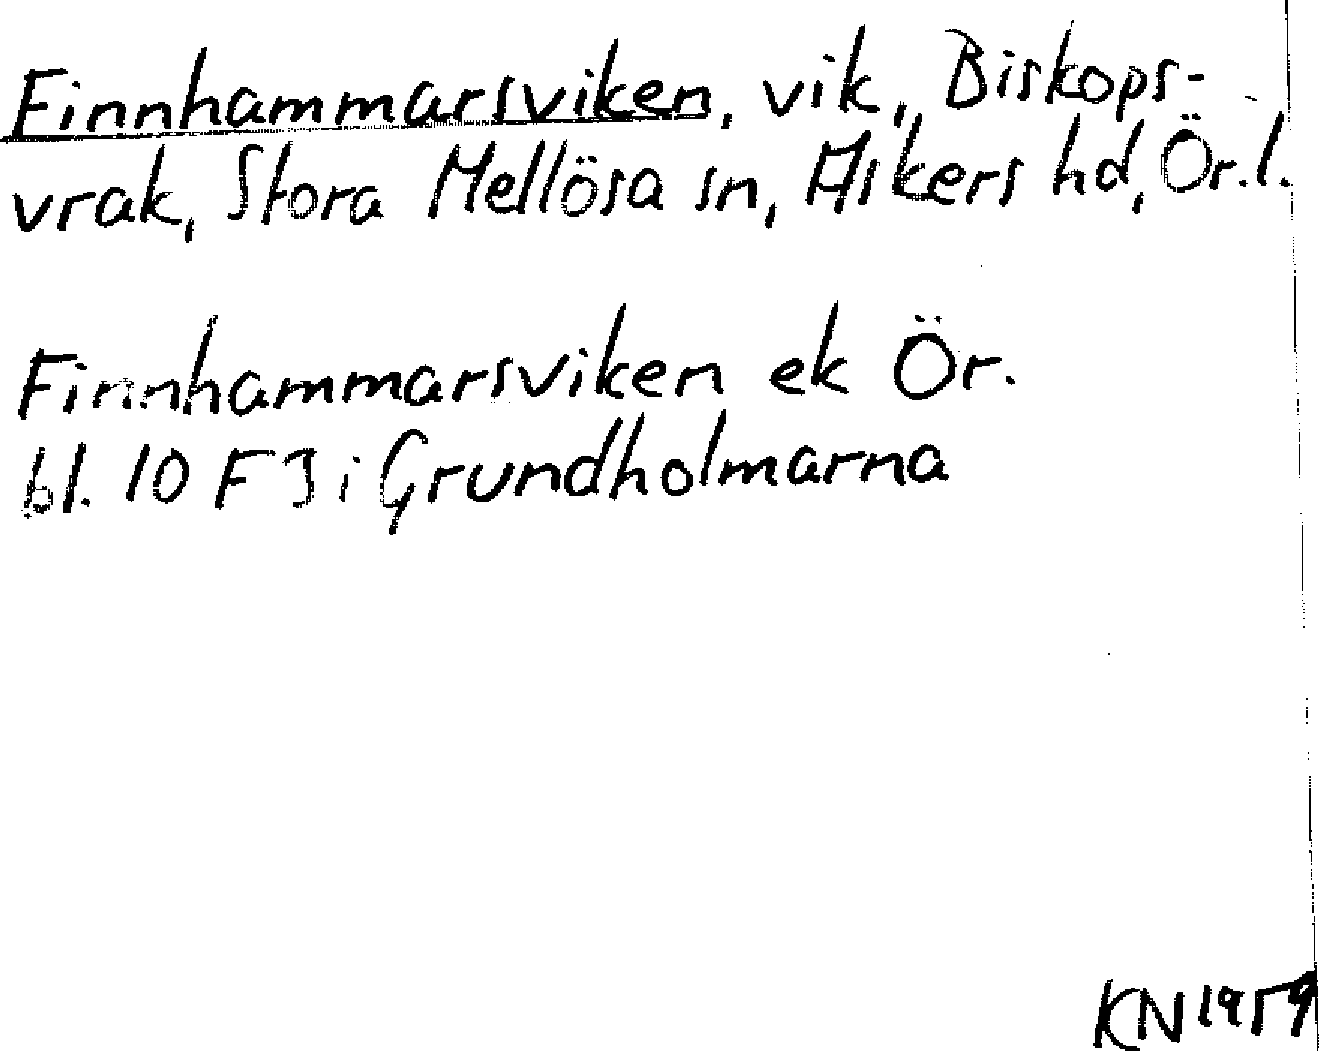 Finnhammarsviken, vik, Biskops-
vrak, Stora Mellösa sn, Askers hd, Ör.l.
Finnhammarsviken ek Ör.
bl. 10 F J i Grundholmarna
KN 1959